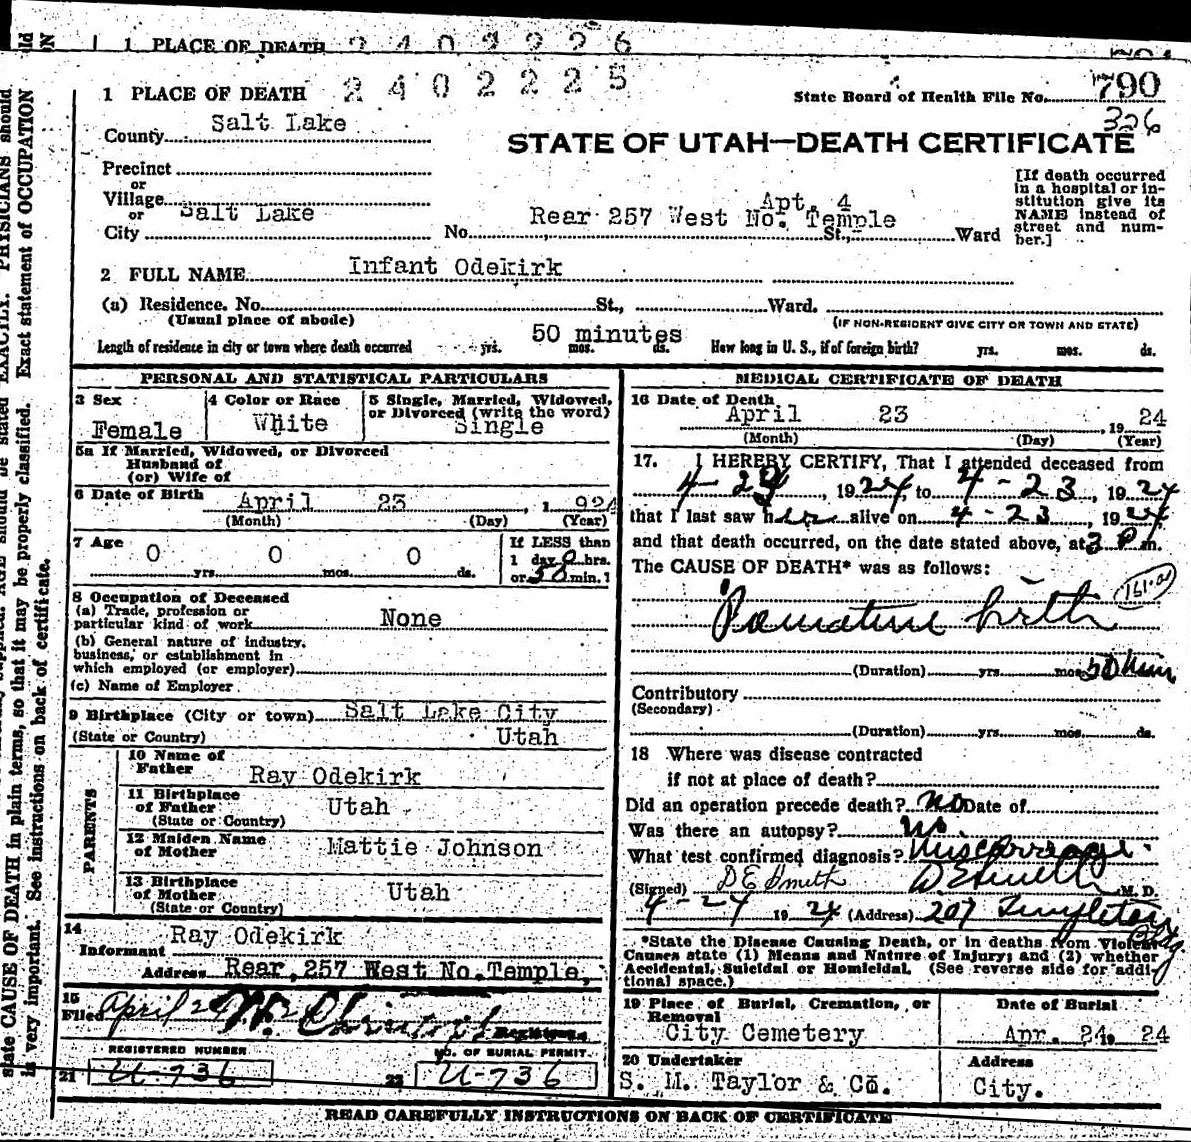 1 PLACE OF DEATH 2402226
2402225
1 PLACE OF DEATH
State Board of Health File No. 790
326
County Salt Lake
STATE OF UTAH—DEATH CERTIFICATE
Precinct
or
Village
or Salt Lake
City
Apt. 4
No. Rear 257 West No. Temple St., Ward
[If death occurred
in a hospital or in-
stitution give its
NAME instead of
street and num-
ber.]
2 FULL NAME Infant Odekirk
(a) Residence. No. St., Ward.
(Usual place of abode)
(IF NON-RESIDENT GIVE CITY OR TOWN AND STATE)
50 minutes
Length of residence in city or town where death occurred yrs. mos. ds. How long in U. S., if of foreign birth? yrs. mos. ds.
PERSONAL AND STATISTICAL PARTICULARS
3 Sex
Female
4 Color or Race
White
5 Single, Married, Widowed,
or Divorced (write the word)
Single
5a If Married, Widowed, or Divorced
Husband of
(or) Wife of
6 Date of Birth April 23, 1 924
(Month) (Day) (Year)
7 Age
0 yrs. 0 mos. 0 ds.
If LESS than
1 day 0 hrs.
or 50 min.
8 Occupation of Deceased
(a) Trade, profession or
particular kind of work None
(b) General nature of industry,
business, or establishment in
which employed (or employer)
(c) Name of Employer
9 Birthplace (City or town) Salt Lake City
(State or Country) Utah
PARENTS
10 Name of
Father Ray Odekirk
11 Birthplace
of Father Utah
(State or Country)
12 Maiden Name
of Mother Mattie Johnson
13 Birthplace
of Mother Utah
(State or Country)
14
Informant Ray Odekirk
Address Rear, 257 West No. Temple,
15
Filed April 24
Registrar
REGISTERED NUMBER
21 U-736
NO. OF BURIAL PERMIT.
22 U-736
MEDICAL CERTIFICATE OF DEATH
16 Date of Death
April 23, 19 24
(Month) (Day) (Year)
17. I HEREBY CERTIFY, That I attended deceased from
4-23, 1924, to 4-23, 1924
that I last saw her alive on 4-23, 1924
and that death occurred, on the date stated above, at 3 P m.
The CAUSE OF DEATH* was as follows:
Premature birth
(Duration) yrs. mos. 50 min
Contributory
(Secondary)
(Duration) yrs. mos. ds.
18 Where was disease contracted
if not at place of death?
Did an operation precede death? No Date of
Was there an autopsy? No.
What test confirmed diagnosis? Miscarriage.
(Signed) D E Smith D E Smith M. D.
4-24 1924 (Address) 207 Templeton Bldg
*State the Disease Causing Death, or in deaths from Violent
Causes state (1) Means and Nature of Injury; and (2) whether
Accidental, Suicidal or Homicidal. (See reverse side for addi-
tional space.)
19 Place of Burial, Cremation, or
Removal
City Cemetery
Date of Burial
Apr. 24, 24
20 Undertaker
S. M. Taylor & Co.
Address
City.
READ CAREFULLY INSTRUCTIONS ON BACK OF CERTIFICATE
EXACTLY. PHYSICIANS should
state CAUSE OF DEATH in plain terms, so that it may be properly classified. Exact statement of OCCUPATION
is very important. See instructions on back of certificate.